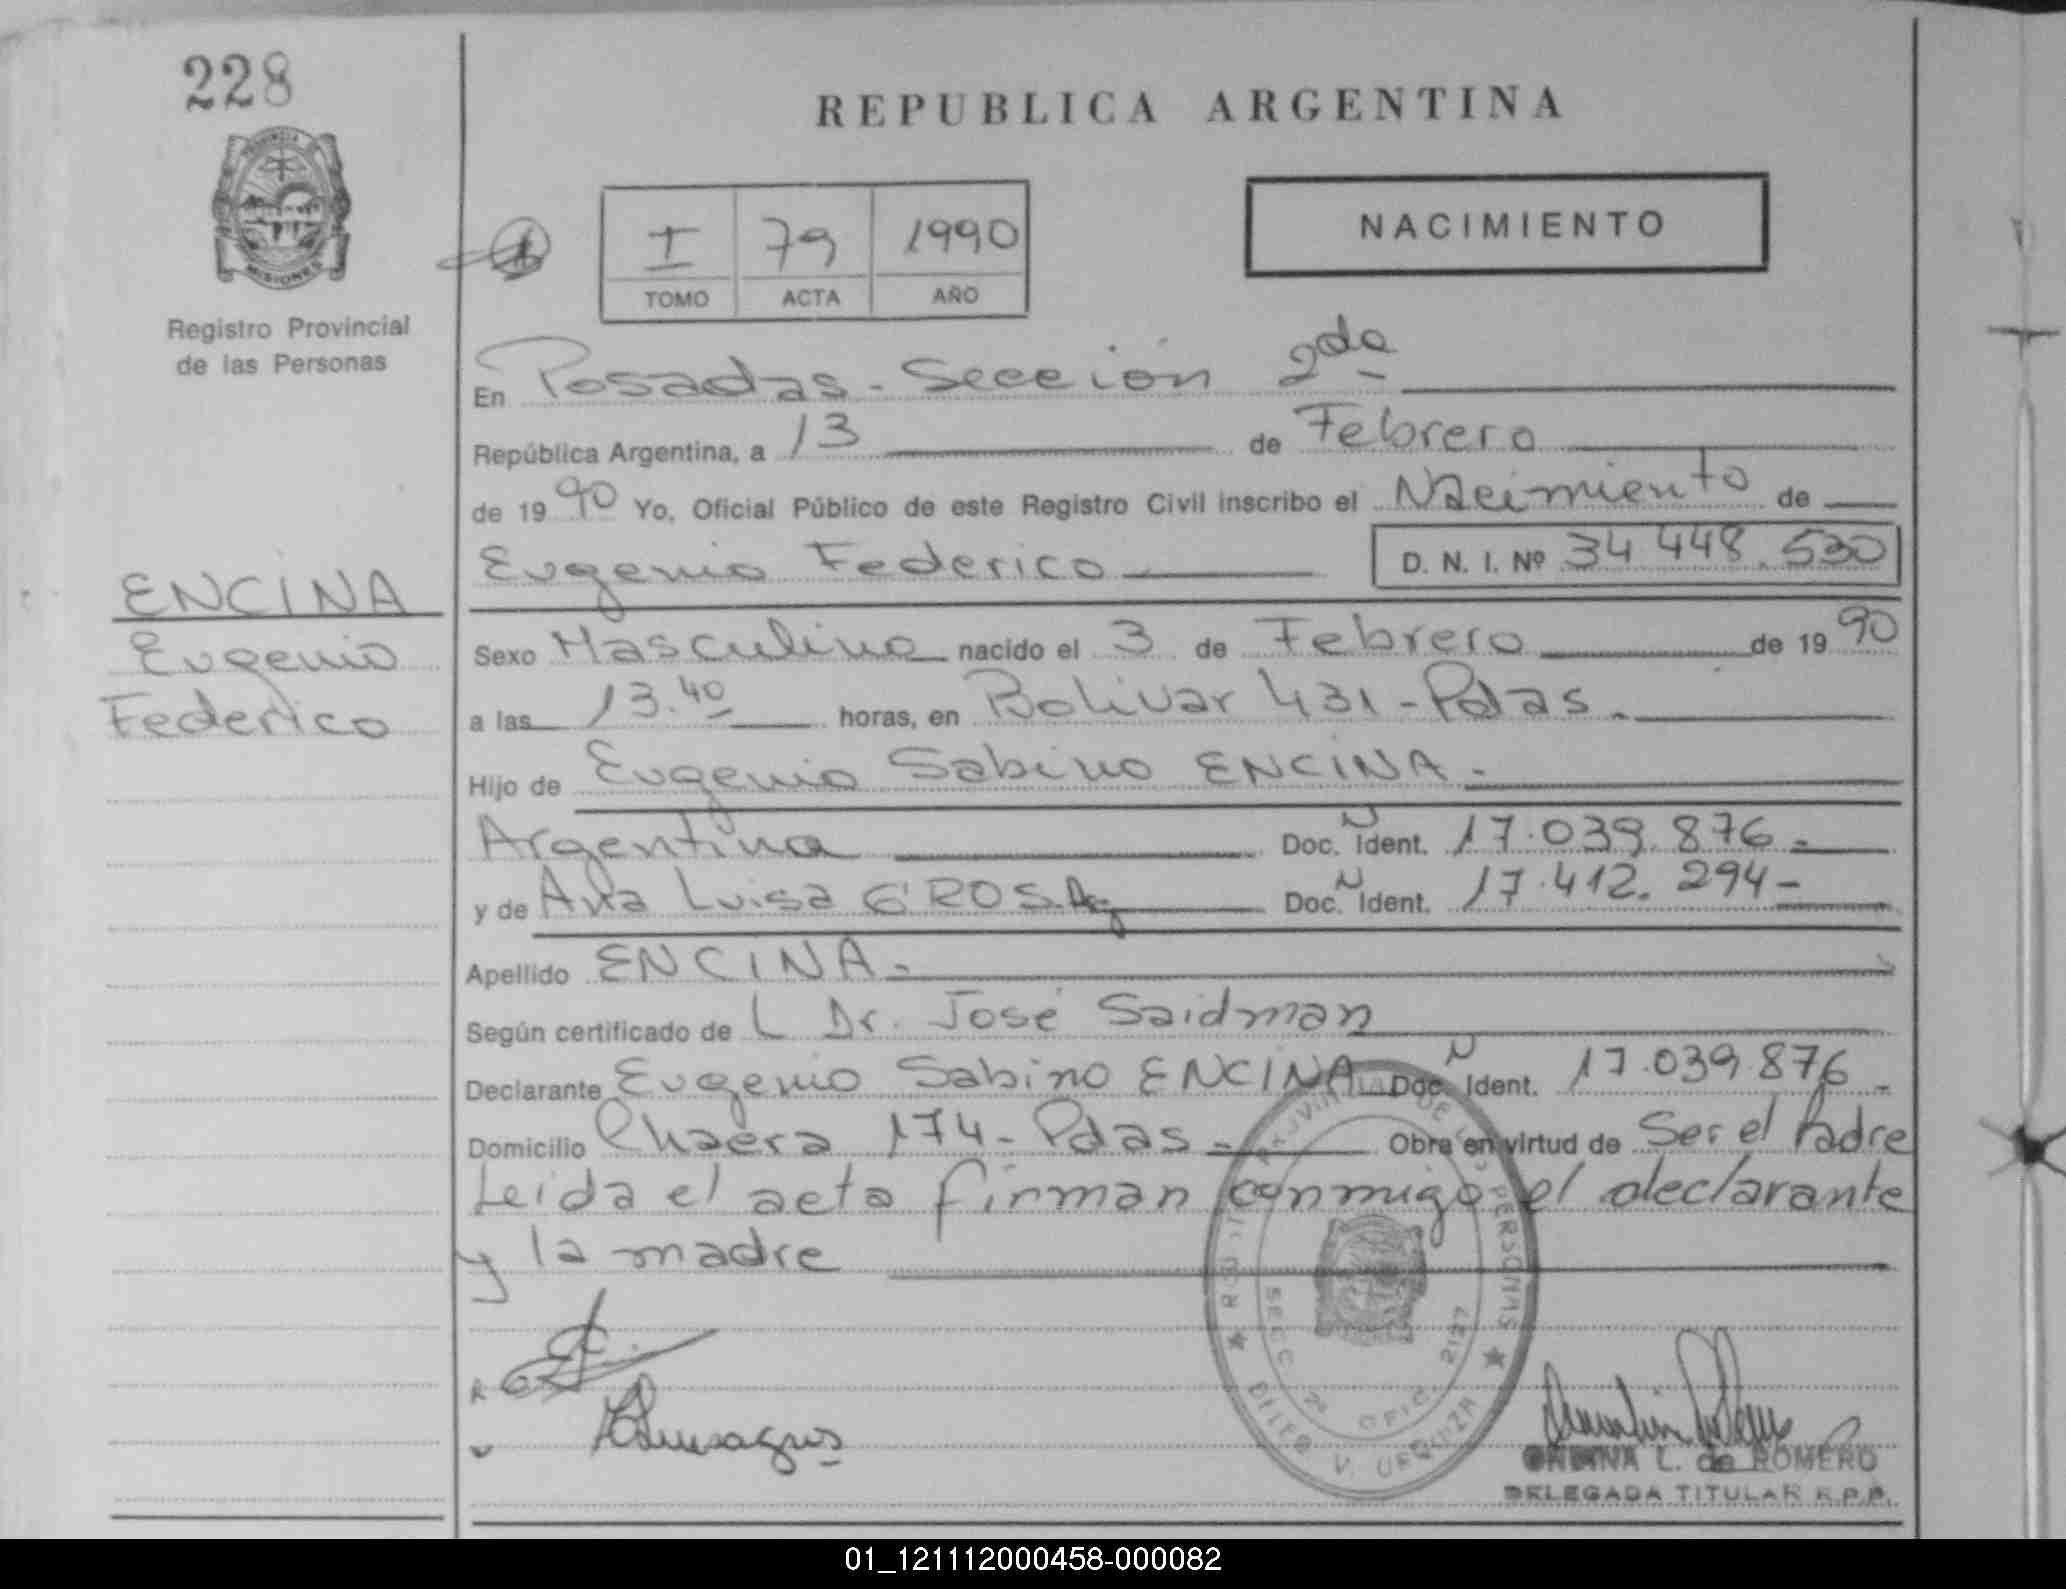 228
REPUBLICA ARGENTINA
PROVINCIA
MISIONES
Registro Provincial
de las Personas
I 79 1990
TOMO ACTA AÑO
NACIMIENTO
En Posadas - Sección 2da
República Argentina, a 13 de Febrero
de 1990 Yo, Oficial Público de este Registro Civil inscribo el Nacimiento de
Eugenio Federico D. N. I. Nº 34 448.530
ENCINA
Eugenio
Federico
Sexo Masculino nacido el 3 de Febrero de 1990
a las 13.40 horas, en Bolivar 431 - Pdas.
Hijo de Eugenio Sabino ENCINA.
Argentina Doc. N Ident. 17.039.876.-
y de Ana Luisa Doc. N Ident. 17.412.294-
Apellido ENCINA.
Según certificado de L Dr. José Saidman
Declarante Eugenio Sabino ENCINA Doc. N Ident. 17.039.876.-
Domicilio Chacra 174 - Pdas - Obra en virtud de Ser el Padre
Leida el acta firman conmigo el declarante
y la madre
DE LAS PERSONAS
SECC 2ª OFIC. 2127
DELEG V. URQUIZA
L. de ROMERO
DELEGADA TITULAR R.P.P.
01_121112000458-000082